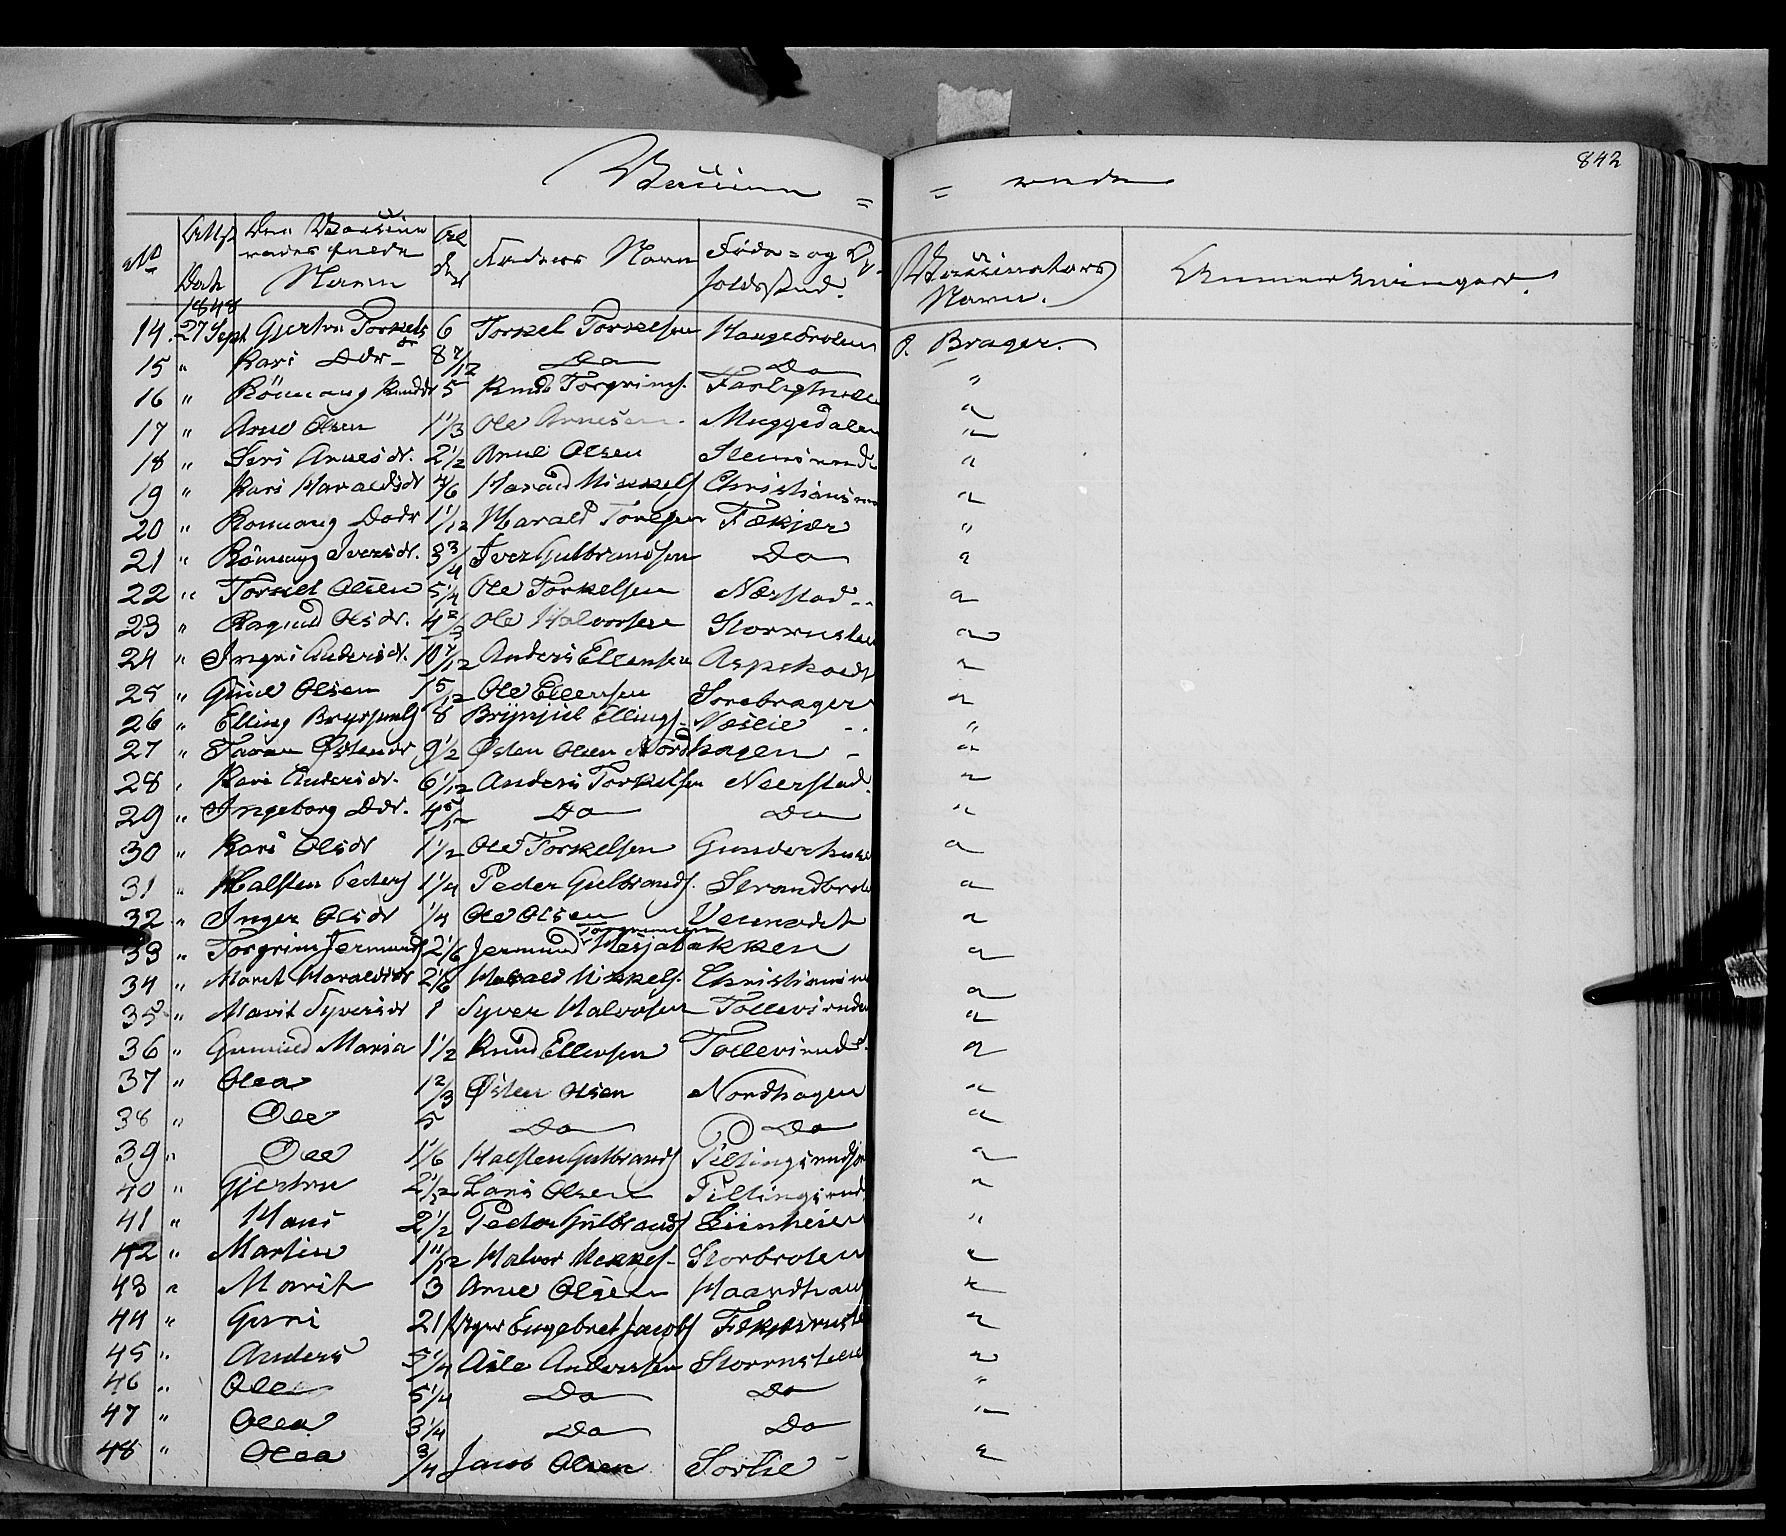 Vaccine = = rede
842
No
Att. Dat.
Den Vaccineredes fulde Navn
Alder
Faders Navn
Føde- og Opholdssted.
Vaccinators Navn.
Anmærkninger.
1848
14. 27 Sept Gjertru Torkelsdr 6 Torkel Torkelsen Haugebroten P. Brager.
15 " Kari Ddr 8 7/12 Do Do "
16 " Rönnaug Knudsdr 5 Knud Torgrims. "
17 " Arne Olsen 1 1/3 Ole Arnesen. Muggedalen "
18 " Siri Arnesdr. 2 1/2 Arne Olsen "
19 " Kari Haraldsdr 4/6 Harald Mikkels "
20 " Ronnaug Dodr 1 1/12 Harald Tor Fækjær "
21 " Rönnaug Iversdr. 3 3/4 Iver Gulbrandsen Do "
22 " Torkel Olsen 5 1/4 Ole Torkelsen Nærstad "
23 " Ragnild Olsdr. 4 2/3 Ole Halvorsen Storrusten "
24 " Ingri Andersdr. 10 7/12 Anders Ellensen "
25 " Olsen 1 5/12 Ole Ellensen Sorebrager "
26 " Elling Brynjuls 8 Brynjul Ellings. Næslie "
27 " Østensdr 9 1/2 Østen Olsen Nordhagen "
28 " Kari Andersdr. 6 1/12 Anders Torkelsen Neerstad. "
29 " Ingeborg Ddr. 4 5/12 Do Do "
30 " Kari Olsdr 1 1/2 Ole Torkelsen "
31 " Halsten Peders 1 1/4 Peder Gulbrands. Strandbrote "
32 " Inger Olsdr 1/4 Ole Olsen "
33 " Torgrim Jermunds 2 1/6 Jermund Torgrimsen Hesjabakken "
34 " Marit Haraldsdr 2 1/6 Harald Mikkels. "
35 " Marit Syversdr 1 Syver Halvorsen Tollevsrude "
36 " Gunnild Maria 1 1/2 Knud Ellensen Tollevsrude. "
37 " Olea 1 2/3 Østen Olsen Nordhagen "
38 " Ole 5 Do Do "
39 " Ole 1 1/6 Halsten Gulbrands "
40 " Gjertru 2 1/12 Lars Olsen Tillingsrud. "
41 " Hans 2 1/2 Peder Gulbrands "
42 " Martin 1 11/12 Halvor Mikkels. Storbroten "
43 " Marit 3 Arne Olsen "
44 " Guri 21 Engebret Jacobs "
45 " Anders 3 1/4 Asle Andersen Storrusteen "
46 " Olea 5 1/4 Do Do "
47 " Olea 3 1/4 Do Do "
48 " Olea 3/4 Jacob Olsen Sorlie "